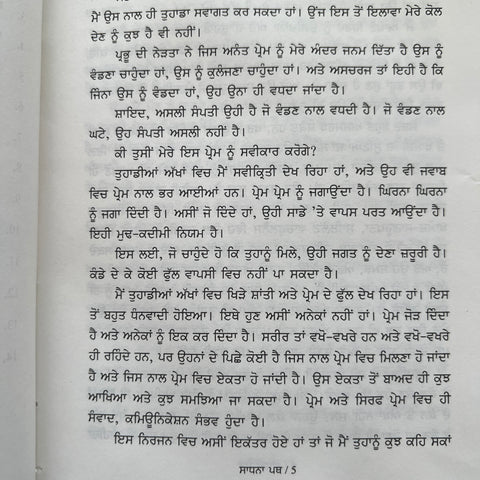 ਮੈਂ ਉਸ ਨਾਲ ਹੀ ਤੁਹਾਡਾ ਸਵਾਗਤ ਕਰ ਸਕਦਾ ਹਾਂ। ਉਂਜ ਇਸ ਤੋਂ ਇਲਾਵਾ ਮੇਰੇ ਕੋਲ
ਦੇਣ ਨੂੰ ਕੁਛ ਹੈ ਵੀ ਨਹੀਂ।
ਪ੍ਰਭੂ ਦੀ ਨੇੜਤਾ ਨੇ ਜਿਸ ਅਨੰਤ ਪ੍ਰੇਮ ਨੂੰ ਮੇਰੇ ਅੰਦਰ ਜਨਮ ਦਿੱਤਾ ਹੈ ਉਸ ਨੂੰ
ਵੰਡਣਾ ਚਾਹੁੰਦਾ ਹਾਂ, ਉਸ ਨੂੰ ਕੁਲੰਜਣਾ ਚਾਹੁੰਦਾ ਹਾਂ। ਅਤੇ ਅਸਚਰਜ ਤਾਂ ਇਹੀ ਹੈ ਕਿ
ਜਿੰਨਾ ਉਸ ਨੂੰ ਵੰਡਦਾ ਹਾਂ, ਉਹ ਉਨਾ ਹੀ ਵਧਦਾ ਜਾਂਦਾ ਹੈ।
ਸ਼ਾਇਦ, ਅਸਲੀ ਸੰਪਤੀ ਉਹੀ ਹੈ ਜੋ ਵੰਡਣ ਨਾਲ ਵਧਦੀ ਹੈ। ਜੋ ਵੰਡਣ ਨਾਲ
ਘਟੇ, ਉਹ ਸੰਪਤੀ ਅਸਲੀ ਨਹੀਂ ਹੈ।
ਕੀ ਤੁਸੀਂ ਮੇਰੇ ਇਸ ਪ੍ਰੇਮ ਨੂੰ ਸਵੀਕਾਰ ਕਰੋਗੇ?
ਤੁਹਾਡੀਆਂ ਅੱਖਾਂ ਵਿਚ ਮੈਂ ਸਵੀਕ੍ਰਿਤੀ ਦੇਖ ਰਿਹਾ ਹਾਂ, ਅਤੇ ਉਹ ਵੀ ਜਵਾਬ
ਵਿਚ ਪ੍ਰੇਮ ਨਾਲ ਭਰ ਆਈਆਂ ਹਨ। ਪ੍ਰੇਮ ਪ੍ਰੇਮ ਨੂੰ ਜਗਾਉਂਦਾ ਹੈ। ਘਿਰਨਾ ਘਿਰਨਾ
ਨੂੰ ਜਗਾ ਦਿੰਦੀ ਹੈ। ਅਸੀਂ ਜੋ ਦਿੰਦੇ ਹਾਂ, ਉਹੀ ਸਾਡੇ 'ਤੇ ਵਾਪਸ ਪਰਤ ਆਉਂਦਾ ਹੈ।
ਇਹੀ ਮੁਢ-ਕਦੀਮੀ ਨਿਯਮ ਹੈ।
ਇਸ ਲਈ, ਜੋ ਚਾਹੁੰਦੇ ਹੋ ਕਿ ਤੁਹਾਨੂੰ ਮਿਲੇ, ਉਹੀ ਜਗਤ ਨੂੰ ਦੇਣਾ ਜ਼ਰੂਰੀ ਹੈ।
ਕੰਡੇ ਦੇ ਕੇ ਕੋਈ ਫੁੱਲ ਵਾਪਸੀ ਵਿਚ ਨਹੀਂ ਪਾ ਸਕਦਾ ਹੈ।
ਮੈਂ ਤੁਹਾਡੀਆਂ ਅੱਖਾਂ ਵਿਚ ਖਿੜੇ ਸ਼ਾਂਤੀ ਅਤੇ ਪ੍ਰੇਮ ਦੇ ਫੁੱਲ ਦੇਖ ਰਿਹਾ ਹਾਂ। ਇਸ
ਤੋਂ ਬਹੁਤ ਧੰਨਵਾਦੀ ਹੋਇਆ। ਇਥੇ ਹੁਣ ਅਸੀਂ ਅਨੇਕਾਂ ਨਹੀਂ ਹਾਂ। ਪ੍ਰੇਮ ਜੋੜ ਦਿੰਦਾ
ਹੈ ਅਤੇ ਅਨੇਕਾਂ ਨੂੰ ਇਕ ਕਰ ਦਿੰਦਾ ਹੈ। ਸਰੀਰ ਤਾਂ ਵਖੋ-ਵਖਰੇ ਹਨ ਅਤੇ ਵਖੋ-ਵਖਰੇ
ਹੀ ਰਹਿੰਦੇ ਹਨ, ਪਰ ਉਹਨਾਂ ਦੇ ਪਿਛੇ ਕੋਈ ਹੈ ਜਿਸ ਨਾਲ ਪ੍ਰੇਮ ਵਿਚ ਮਿਲਣਾ ਹੋ ਜਾਂਦਾ
ਹੈ ਅਤੇ ਜਿਸ ਨਾਲ ਪ੍ਰੇਮ ਵਿਚ ਏਕਤਾ ਹੋ ਜਾਂਦੀ ਹੈ। ਉਸ ਏਕਤਾ ਤੋਂ ਬਾਅਦ ਹੀ ਕੁਛ
ਆਖਿਆ ਅਤੇ ਕੁਛ ਸਮਝਿਆ ਜਾ ਸਕਦਾ ਹੈ। ਪ੍ਰੇਮ ਅਤੇ ਸਿਰਫ ਪ੍ਰੇਮ ਵਿਚ ਹੀ
ਸੰਵਾਦ, ਕਮਿਊਨਿਕੇਸ਼ਨ ਸੰਭਵ ਹੁੰਦਾ ਹੈ।
ਇਸ ਨਿਰਜਨ ਵਿਚ ਅਸੀਂ ਇਕੱਤਰ ਹੋਏ ਹਾਂ ਤਾਂ ਜੋ ਮੈਂ ਤੁਹਾਨੂੰ ਕੁਝ ਕਹਿ ਸਕਾਂ
ਸਾਧਨਾ ਪਥ / 5